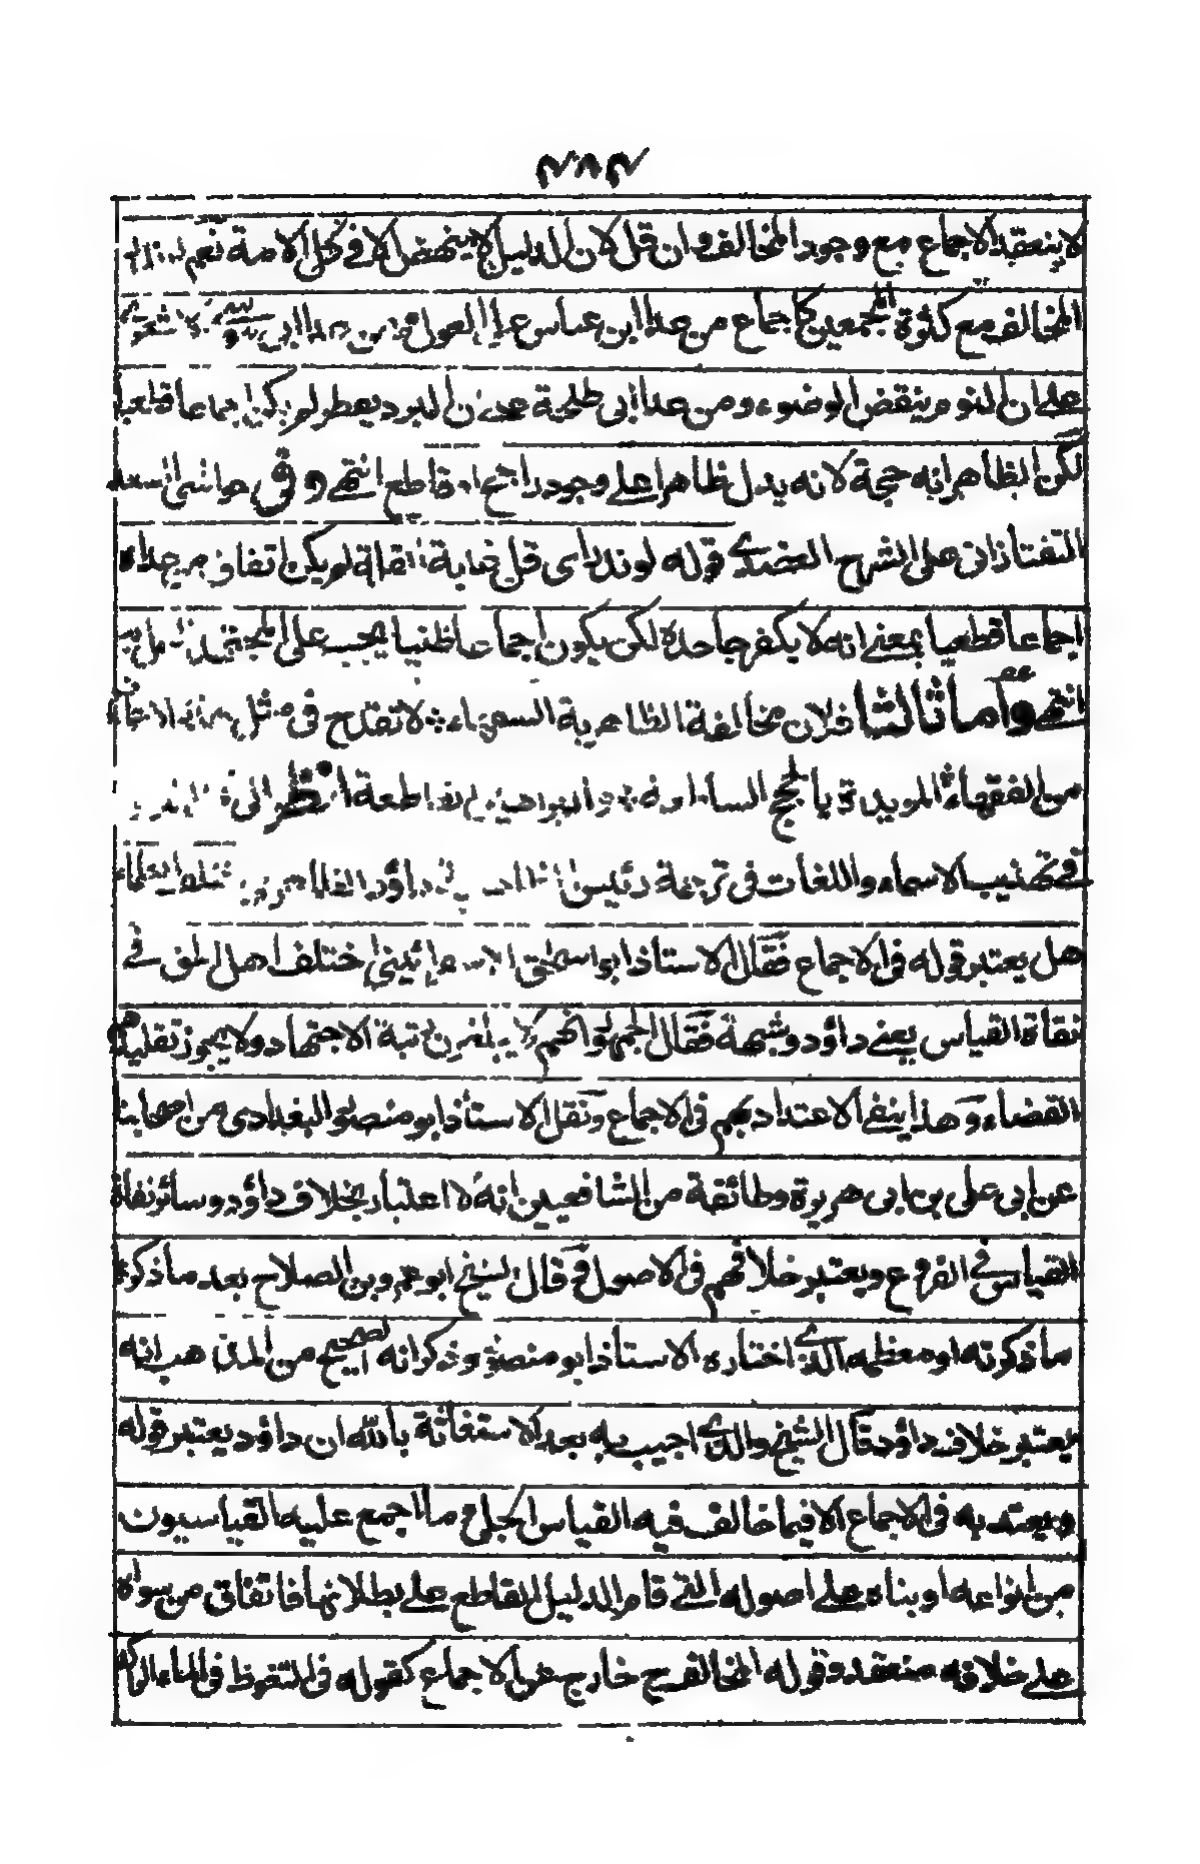 ٢٨٢
لا ينعقد الاجماع مع وجود المخالف وان قل لان الدليل لا ينهض الا في كل الامة نعم
المخالف مع كثرة المجمعين كاجماع من عدا ابن عباس على العول ومن عدا ابي
على ان النوم ينقض الوضوء ومن عدا ابى طلحة على ان البرد يفطر لم يكن اجماعا قطعيا
لكن الظاهر انه حجة لانه يدل ظاهرا على وجود راجح او قاطع انتهى وفى حواشى السعد
التفتازانى على الشرح العضدى قوله لو ندر اى قل غاية القلة لم يكن اتفاق من عداه
اجماعا قطعيا بمعنى انه لا يكفر جاحده لكن يكون اجماعا ظنيا يجب على المجتهد
انتهى وأما ثالثا فلان مخالفة الظاهرية السمهاء لا تقدح فى مثل هذا الاجماع
من الفقهاء المويدة بالحجج الساطعة والبراهين القاطعة انظر الى
فى تهذيب الاسماء واللغات فى ترجمة رئيس داؤد الظاهرى اختلف العلماء
هل يعتبر قوله فى الاجماع فقال الاستاذ ابو اسحق الاسفرائينى اختلف اهل الحق فى
نفاة القياس يعنى داؤد وشبهه فقال الجمهور انهم لا يبلغون رتبة الاجتهاد ولا يجوز تقليدهم
القضاء وهذا ينفى الاعتداد بهم فى الاجماع ونقل الاستاذ ابو منصور البغدادى من اصحابنا
عن ابى على بن ابى هريرة وطائفة من الشافعيين انه لا اعتبار بخلاف داؤد وسائر نفاة
القياس فى الفروع ويعتبر خلافهم فى الاصول وقال الشيخ ابو عمرو بن الصلاح بعد ما ذكر
ما ذكرته او معظمه الذى اختاره الاستاذ ابو منصور وذكر انه الصحيح من المذهب انه
يعتبر خلاف داؤد قال الشيخ والذى اجيب به بعد الاستغاثة بالله ان داؤد يعتبر قوله
ويعتد به فى الاجماع الا فيما خالف فيه القياس الجلى وما اجمع عليه القياسيون
من انواعه او بناه على اصوله التى قام الدليل القاطع على بطلانها فاتفاق من سواه
على خلافه منعقد وقوله المخالف ح خارج عن الاجماع كقوله فى التغوط فى الماء الراكد